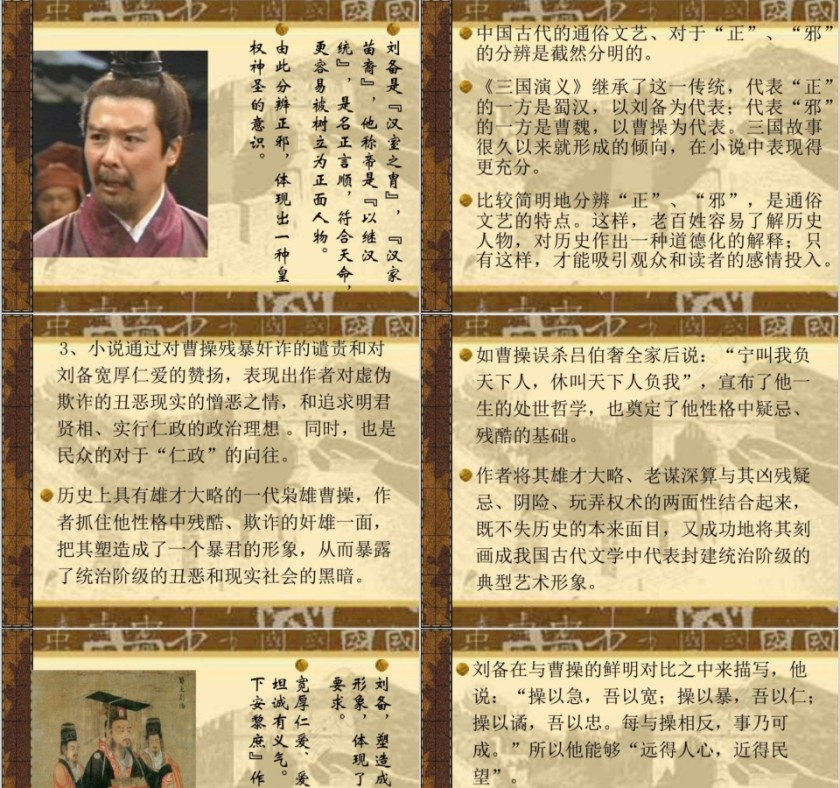 刘备是『汉室之胄』，『汉家
苗裔』，他称帝是『以继汉
统』，是名正言顺，符合天命，
更容易被树立为正面人物。
由此分辨正邪，体现出一种皇
权神圣的意识。
中国古代的通俗文艺、对于“正”、“邪”
的分辨是截然分明的。
《三国演义》继承了这一传统，代表“正”
的一方是蜀汉，以刘备为代表；代表“邪”
的一方是曹魏，以曹操为代表。三国故事
很久以来就形成的倾向，在小说中表现得
更充分。
比较简明地分辨“正”、“邪”，是通俗
文艺的特点。这样，老百姓容易了解历史
人物，对历史作出一种道德化的解释；只
有这样，才能吸引观众和读者的感情投入。
3、小说通过对曹操残暴奸诈的谴责和对
刘备宽厚仁爱的赞扬，表现出作者对虚伪
欺诈的丑恶现实的憎恶之情，和追求明君
贤相、实行仁政的政治理想 。同时，也是
民众的对于“仁政”的向往。
历史上具有雄才大略的一代枭雄曹操，作
者抓住他性格中残酷、欺诈的奸雄一面，
把其塑造成了一个暴君的形象，从而暴露
了统治阶级的丑恶和现实社会的黑暗。
如曹操误杀吕伯奢全家后说：“宁叫我负
天下人，休叫天下人负我”，宣布了他一
生的处世哲学，也奠定了他性格中疑忌、
残酷的基础。
作者将其雄才大略、老谋深算与其凶残疑
忌、阴险、玩弄权术的两面性结合起来，
既不失历史的本来面目，又成功地将其刻
画成我国古代文学中代表封建统治阶级的
典型艺术形象。
刘备，塑造成
形象，体现了
要求。
宽厚仁爱、爱
坦诚有义气。
下安黎庶』作
刘备在与曹操的鲜明对比之中来描写，他
说：“操以急，吾以宽；操以暴，吾以仁；
操以谲，吾以忠。每与操相反，事乃可
成。”所以他能够“远得人心，近得民
望”。